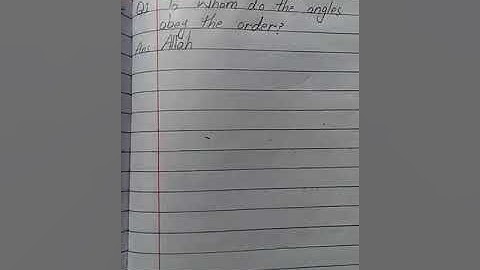 Q1 To Whom do the angles
obey the order?
Ans Allah